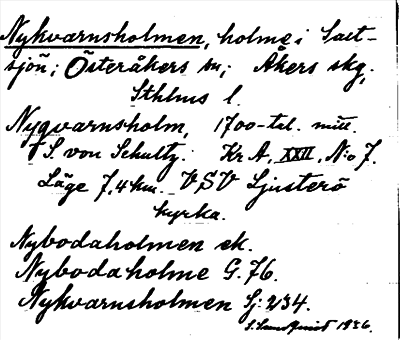 Nykvarnsholmen, holme i Salt-
sjön; Österåkers sn; Åkers skg,
Sthlms l.
Nyqvarnsholm, 1700-tal. mitt.
S. von Schultz. Kr A, XXII, N:o 7.
Läge 7,4 km. VSV Ljusterö
kyrka.
Nybodaholmen ek.
Nybodaholme G. 76.
Nykvarnsholmen Sj: 234.
S. Lundqvist 1936.